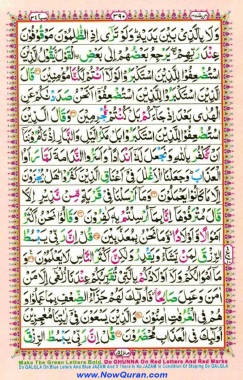 سبا ٣٤ ٣٩٠
وَلَا بِالَّذِيْ بَيْنَ يَدَيْهِ وَلَوْ تَرٰٓى اِذِ الظّٰلِمُوْنَ مَوْقُوْفُوْنَ
عِنْدَ رَبِّهِمْ يَرْجِعُ بَعْضُهُمْ اِلٰى بَعْضِ ِۨالْقَوْلَ يَقُوْلُ الَّذِيْنَ
اسْتُضْعِفُوْا لِلَّذِيْنَ اسْتَكْبَرُوْا لَوْلَآ اَنْتُمْ لَكُنَّا مُؤْمِنِيْنَ قَالَ
الَّذِيْنَ اسْتَكْبَرُوْا لِلَّذِيْنَ اسْتُضْعِفُوْٓا اَنَحْنُ صَدَدْنٰكُمْ عَنِ
الْهُدٰى بَعْدَ اِذْ جَآءَكُمْ بَلْ كُنْتُمْ مُّجْرِمِيْنَ وَقَالَ الَّذِيْنَ
اسْتُضْعِفُوْا لِلَّذِيْنَ اسْتَكْبَرُوْا بَلْ مَكْرُ الَّيْلِ وَالنَّهَارِ اِذْ تَاْمُرُوْنَنَآ
اَنْ نَّكْفُرَ بِاللّٰهِ وَنَجْعَلَ لَهٗٓ اَنْدَادًا وَاَسَرُّوا النَّدَامَةَ لَمَّا رَاَوُا
الْعَذَابَ وَجَعَلْنَا الْاَغْلٰلَ فِيْٓ اَعْنَاقِ الَّذِيْنَ كَفَرُوْا هَلْ يُجْزَوْنَ
اِلَّا مَا كَانُوْا يَعْمَلُوْنَ وَمَآ اَرْسَلْنَا فِيْ قَرْيَةٍ مِّنْ نَّذِيْرٍ اِلَّا
قَالَ مُتْرَفُوْهَآ اِنَّا بِمَآ اُرْسِلْتُمْ بِهٖ كٰفِرُوْنَ وَقَالُوْا نَحْنُ اَكْثَرُ
اَمْوَالًا وَّاَوْلَادًا وَّمَا نَحْنُ بِمُعَذَّبِيْنَ قُلْ اِنَّ رَبِّيْ يَبْسُطُ
الرِّزْقَ لِمَنْ يَّشَآءُ وَيَقْدِرُ وَلٰكِنَّ اَكْثَرَ النَّاسِ لَا يَعْلَمُوْنَ وَ
مَآ اَمْوَالُكُمْ وَلَآ اَوْلَادُكُمْ بِالَّتِيْ تُقَرِّبُكُمْ عِنْدَنَا زُلْفٰٓى اِلَّا مَنْ
اٰمَنَ وَعَمِلَ صَالِحًا فَاُولٰٓئِكَ لَهُمْ جَزَآءُ الضِّعْفِ بِمَا عَمِلُوْا وَ
هُمْ فِي الْغُرُفٰتِ اٰمِنُوْنَ وَالَّذِيْنَ يَسْعَوْنَ فِيْٓ اٰيٰتِنَا مُعٰجِزِيْنَ
اُولٰٓئِكَ فِي الْعَذَابِ مُحْضَرُوْنَ قُلْ اِنَّ رَبِّيْ يَبْسُطُ الرِّزْقَ
Make The Green Letters Bold. Do GHUNNA On Red Letters And Red Marks
Do QALQLA On Blue Leters And Blue JAZAM And If There Is No JAZAM In Condition Of Stoping Do QALQLA
www.NowQuran.com